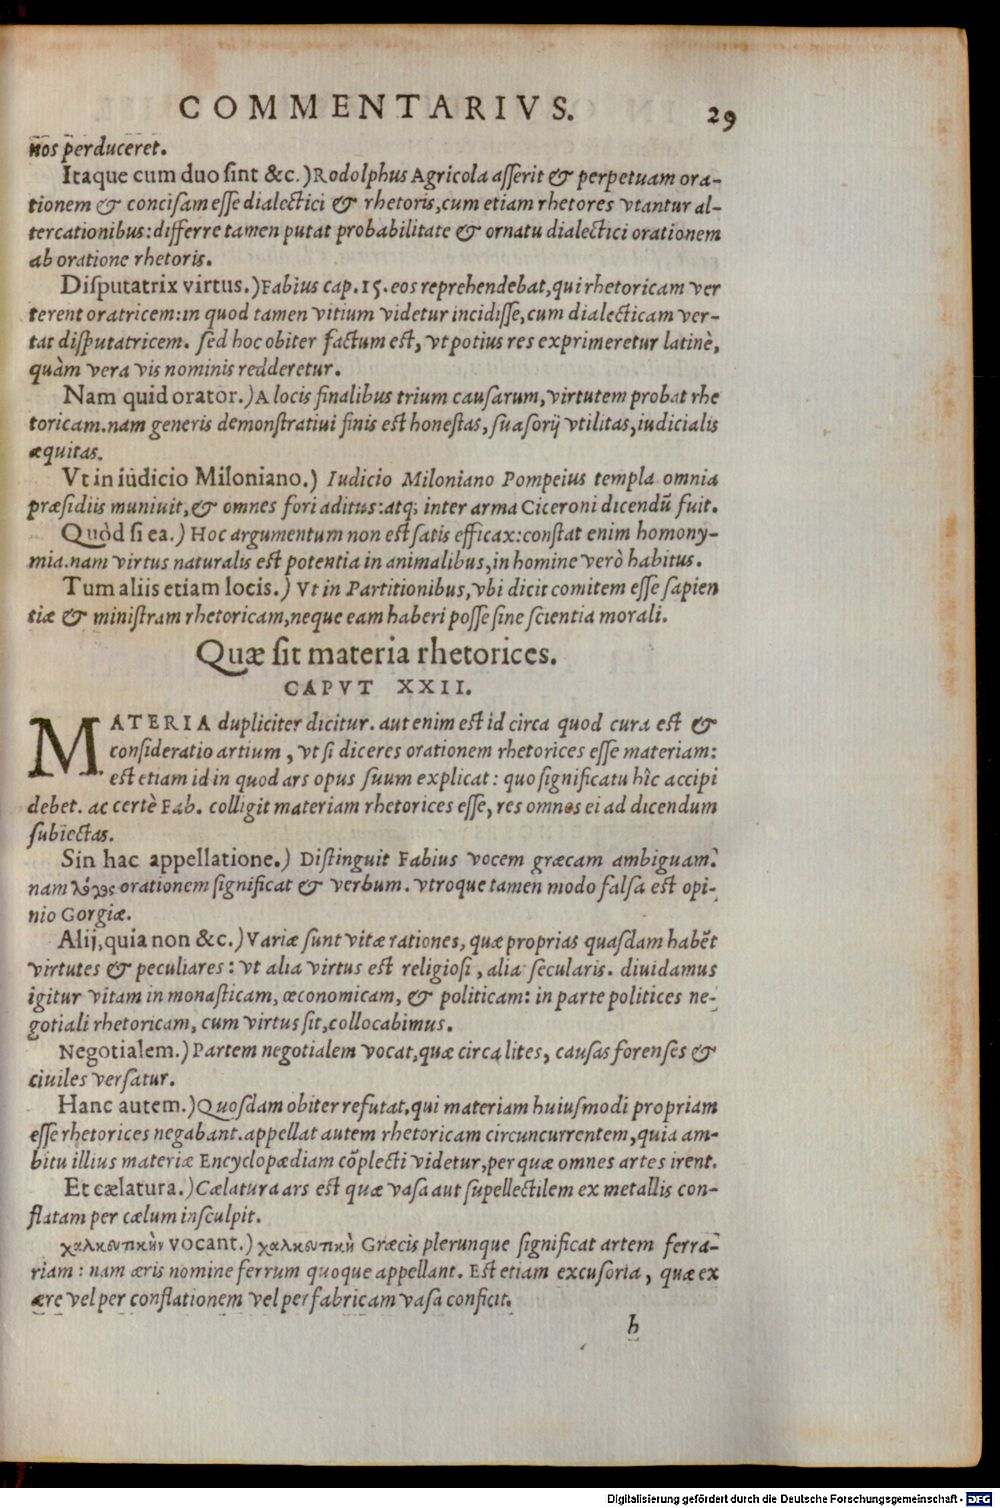 COMMENTARIVS. 29
nos perduceret.
Itaque cum duo ſint &c.) Rodolphus Agricola aſſerit & perpetuam ora-
tionem & conciſam eſſe dialectici & rhetoris, cum etiam rhetores vtantur al-
tercationibus: differre tamen putat probabilitate & ornatu dialectici orationem
ab oratione rhetoris.
Diſputatrix virtus.) Fabius cap. 15. eos reprehendebat, qui rhetoricam ver
terent oratricem: in quod tamen vitium videtur incidiſſe, cum dialecticam ver-
tat diſputatricem. ſed hoc obiter factum eſt, vt potius res exprimeretur latinè,
quàm vera vis nominis redderetur.
Nam quid orator.) A locis finalibus trium cauſarum, virtutem probat rhe
toricam. nam generis demonſtratiui finis eſt honeſtas, ſuaſorij vtilitas, iudicialis
æquitas.
Vt in iudicio Miloniano.) Iudicio Miloniano Pompeius templa omnia
præſidiis muniuit, & omnes fori aditus: atq; inter arma Ciceroni dicendū fuit.
Quòd ſi ea.) Hoc argumentum non eſt ſatis efficax: conſtat enim homony-
mia. nam virtus naturalis eſt potentia in animalibus, in homine verò habitus.
Tum aliis etiam locis.) Vt in Partitionibus, vbi dicit comitem eſſe ſapien
tiæ & miniſtram rhetoricam, neque eam haberi poſſe ſine ſcientia morali.
Quæ ſit materia rhetorices.
CAPVT XXII.
MATERIA dupliciter dicitur. aut enim eſt id circa quod cura eſt &
conſideratio artium, vt ſi diceres orationem rhetorices eſſe materiam:
eſt etiam id in quod ars opus ſuum explicat: quo ſignificatu hîc accipi
debet. ac certè Fab. colligit materiam rhetorices eſſe, res omnes ei ad dicendum
ſubiectas.
Sin hac appellatione.) Diſtinguit Fabius vocem græcam ambiguam.
nam λόγος orationem ſignificat & verbum. vtroque tamen modo falſa eſt opi-
nio Gorgiæ.
Alij, quia non &c.) Variæ ſunt vitæ rationes, quæ proprias quaſdam habēt
virtutes & peculiares: vt alia virtus eſt religioſi, alia ſecularis. diuidamus
igitur vitam in monaſticam, œconomicam, & politicam: in parte politices ne-
gotiali rhetoricam, cum virtus ſit, collocabimus.
Negotialem.) Partem negotialem vocat, quæ circa lites, cauſas forenſes &
ciuiles verſatur.
Hanc autem.) Quoſdam obiter refutat, qui materiam huiuſmodi propriam
eſſe rhetorices negabant. appellat autem rhetoricam circuncurrentem, quia am-
bitu illius materiæ Encyclopædiam cōplecti videtur, per quæ omnes artes irent.
Et cælatura.) Cælatura ars eſt quæ vaſa aut ſupellectilem ex metallis con-
flatam per cælum inſculpit.
χαλκευτικὴν vocant.) χαλκευτικὴ Græcis plerunque ſignificat artem ferra-
riam: nam æris nomine ferrum quoque appellant. Eſt etiam excuſoria, quæ ex
ære vel per conflationem vel per fabricam vaſa conficit.
h
Digitalisierung gefördert durch die Deutsche Forschungsgemeinschaft - DFG